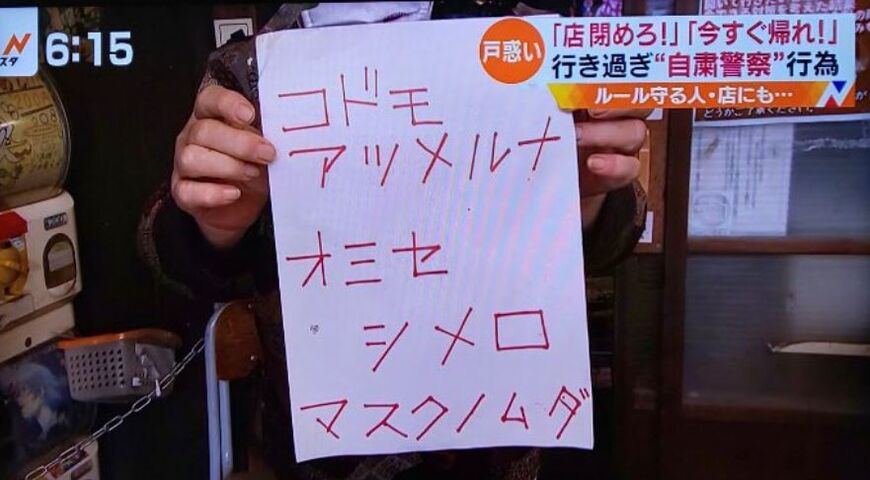 N
スタ
6:15
戸惑い
「店閉めろ!」「今すぐ帰れ!」
行き過ぎ“自粛警察”行為
ルール守る人・店にも…
コドモ
アツメルナ
オミセ
シメロ
マスクノムダ